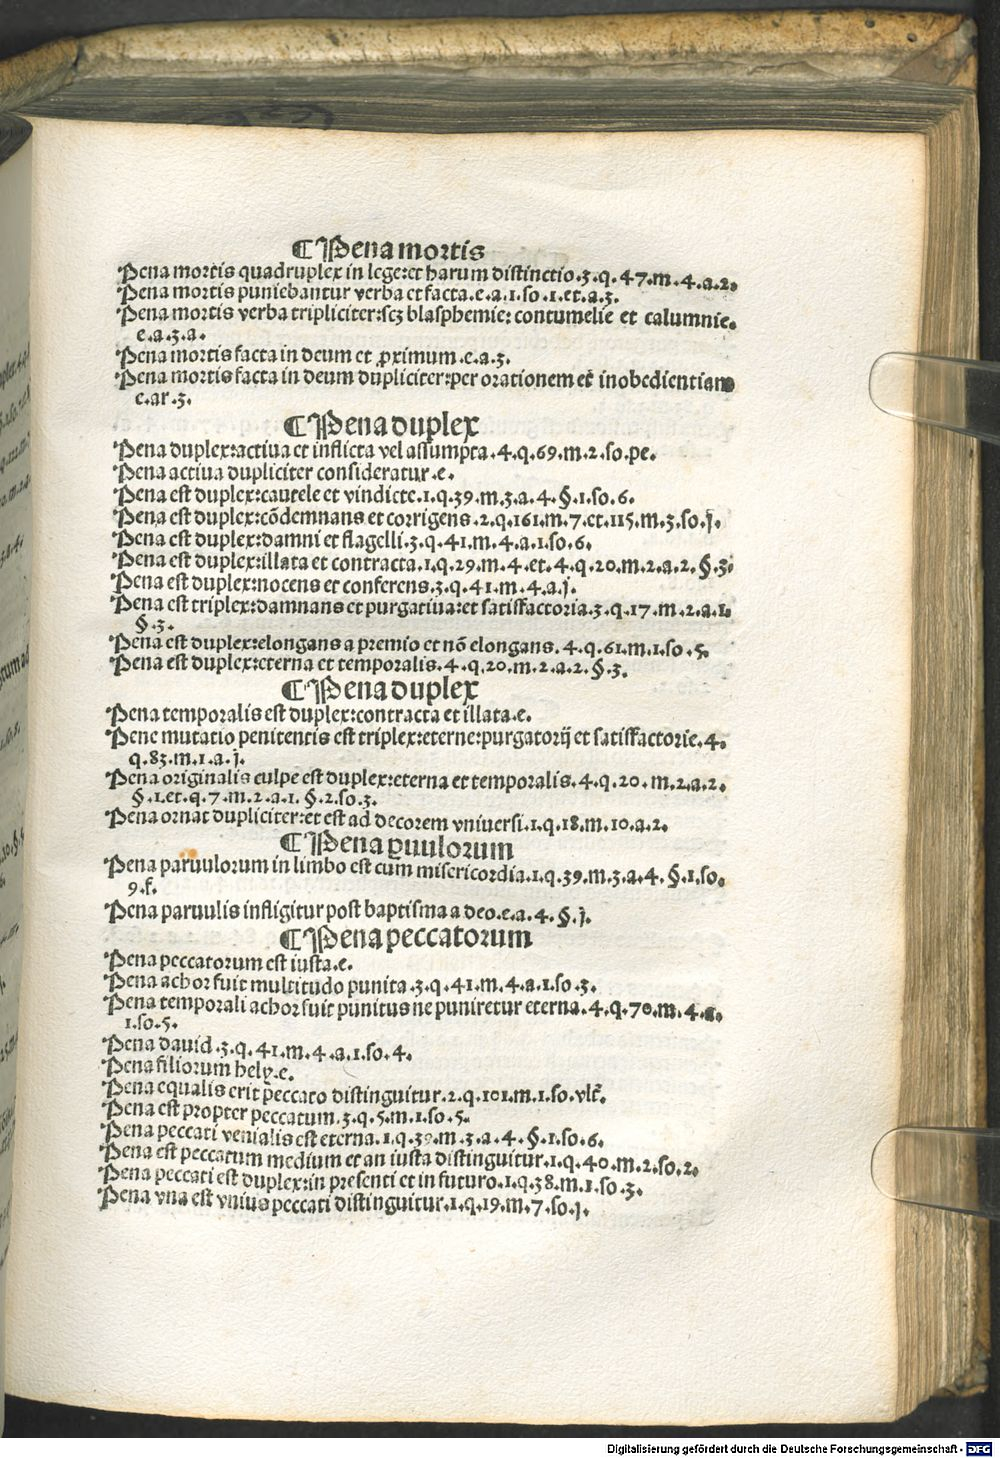 ¶ Pena mortis
Pena mortis quadruplex in lege:et harum distinctio.3.q.47.m.4.a.2.
Pena mortis puniebantur verba et facta.e.a.1.so.1.et.a.3.
Pena mortis verba tripliciter:scꝫ blasphemie: contumelie et calumnie.
e.a.3.a.
Pena mortis facta in deum et ꝓximum.e.a.3.
Pena mortis facta in deum dupliciter:per orationem et inobedientiam
e.ar.3.
¶ Pena duplex
Pena duplex:actiua et inflicta vel assumpta.4.q.69.m.2.so.pe.
Pena actiua dupliciter consideratur.e.
Pena est duplex:cautele et vindicte.1.q.39.m.3.a.4.§.1.so.6.
Pena est duplex:cōdemnans et corrigens.2.q.161.m.7.et.115.m.3.so.j.
Pena est duplex:damni et flagelli.3.q.41.m.4.a.1.so.6.
Pena est duplex:illata et contracta.1.q.29.m.4.et.4.q.20.m.2.a.2.§.3.
Pena est duplex:nocens et conferens.3.q.41.m.4.a.j.
Pena est triplex:damnans et purgatiua:et satisfactoria.3.q.17.m.2.a.1.
§.3.
Pena est duplex:elongans a premio et nō elongans.4.q.61.m.1.so.5.
Pena est duplex:eterna et temporalis.4.q.20.m.2.a.2.§.3.
¶ Pena duplex
Pena temporalis est duplex:contracta et illata.e.
Pene mutatio penitentis est triplex:eterne:purgatorij et satisfactorie.4.
q.83.m.1.a.j.
Pena originalis culpe est duplex:eterna et temporalis.4.q.20.m.2.a.2.
§.1.et.q.7.m.2.a.1.§.2.so.3.
Pena ornat dupliciter:et est ad decorem vniuersi.1.q.18.m.10.a.2.
¶ Pena ꝑuulorum
Pena paruulorum in limbo est cum misericordia.1.q.39.m.3.a.4.§.1.so.
9.f.
Pena paruulis infligitur post baptisma a deo.e.a.4.§.j.
¶ Pena peccatorum
Pena peccatorum est iusta.e.
Pena achor fuit multitudo punita.3.q.41.m.4.a.1.so.3.
Pena temporali achor fuit punitus ne puniretur eterna.4.q.70.m.4.a.
1.so.5.
Pena dauid.3.q.41.m.4.a.1.so.4.
Pena filiorum hely.e.
Pena equalis erit peccato distinguitur.2.q.101.m.1.so.vlt̄.
Pena est propter peccatum.3.q.5.m.1.so.5.
Pena peccati venialis est eterna.1.q.39.m.3.a.4.§.1.so.6.
Pena est peccatum medium et an iusta distinguitur.1.q.40.m.2.so.2.
Pena peccati est duplex:in presenti et in futuro.1.q.38.m.1.so.3.
Pena vna est vnius peccati distinguitur.1.q.19.m.7.so.j.
Digitalisierung gefördert durch die Deutsche Forschungsgemeinschaft - DFG